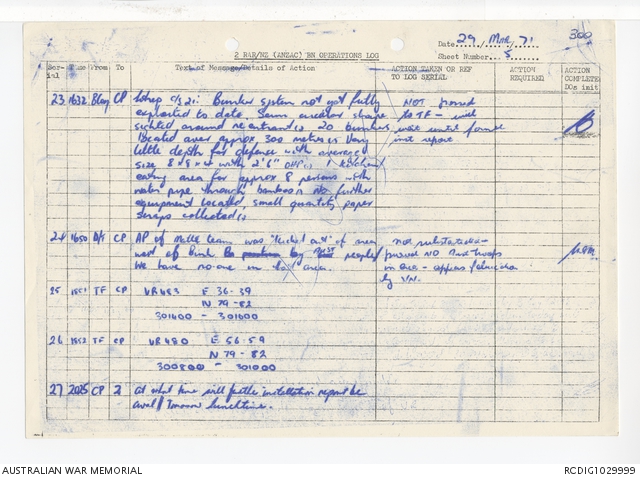 300
Date 29 / Mar / 71
2 RAR/NZ (ANZAC) BN OPERATIONS LOG
Sheet Number 5
Serial Time From To Text of Message/Details of Action ACTION TAKEN OR REF TO LOG SERIAL ACTION REQUIRED ACTION COMPLETE DOs init
23 1632 CP Bunker system not yet fully NOT passed
exploited to date. Semi circular shape to TF - will
sighted around re entrant is 20 bunkers wait until formal
located over approx 300 metres is Very inst report
little depth for defence with average
size 8 x 8 x 4 with 2'6" OHP is 1 kitchen
eating area for approx 8 persons with
water pipe through bamboo is No further
equipment located, small quantity paper
scraps collected is
24 1650 CP AP of team was "kicked out" of area not substantiated -
west of Binh Ba by people passed NO troops
We have no-one in area. in area -
by VN.
25 TF CP VR483 E 36-39
N 79-82
301400 - 301600
26 1852 TF CP VR480 E 56-59
N 79-82
300800 - 301000
27 2025 CP 2 At what time will further installation report be
avail / Tomorrow lunchtime.
AUSTRALIAN WAR MEMORIAL
RCDIG1029999